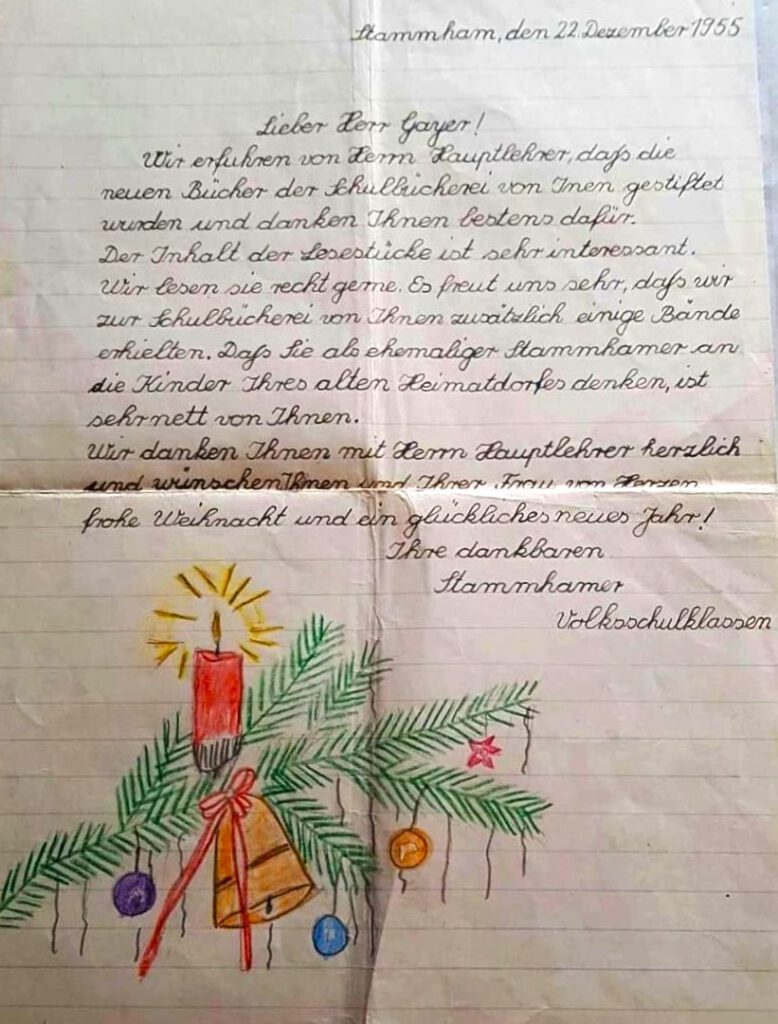 Stammham, den 22. Dezember 1955
Lieber Herr Gayer!
Wir erfuhren von Herrn Hauptlehrer, daß die
neuen Bücher der Schulbücherei von Inen gestiftet
wurden und danken Ihnen bestens dafür.
Der Inhalt der Lesestücke ist sehr interessant.
Wir lesen sie recht gerne. Es freut uns sehr, daß wir
zur Schulbücherei von Ihnen zusätzlich einige Bände
erhielten. Daß Sie als ehemaliger Stammhamer an
die Kinder Ihres alten Heimatdorfes denken, ist
sehr nett von Ihnen.
Wir danken Ihnen mit Herrn Hauptlehrer herzlich
und wünschen Ihnen und Ihrer Frau von Herzen
frohe Weihnacht und ein glückliches neues Jahr!
Ihre dankbaren
Stammhamer
Volksschulklassen